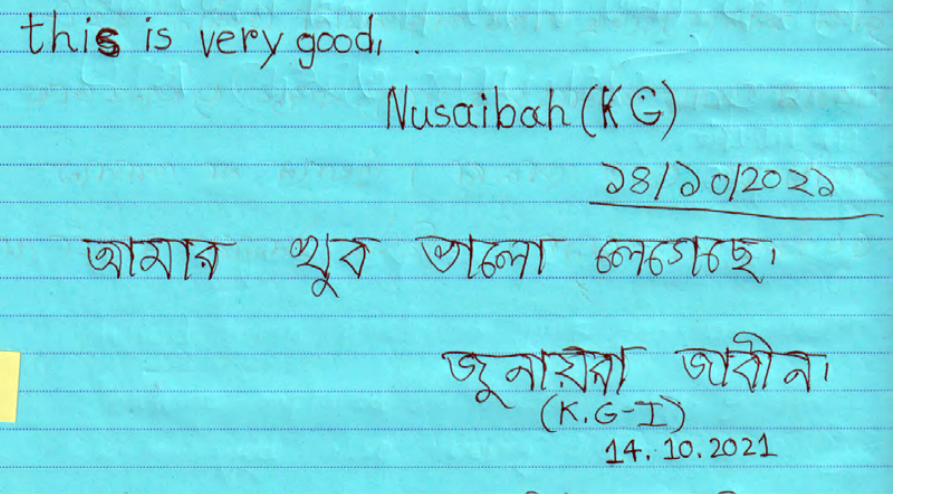 this is very good.
Nusaibah (KG)
১৪/১০/2০২১
আমার খুব ভালো লেগেছে।
জুনায়রা জাবীন।
(K.G-I)
14.10.2021